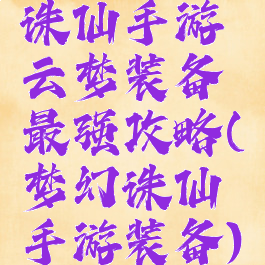 诛仙手游
云梦装备
最强攻略(
梦幻诛仙
手游装备)